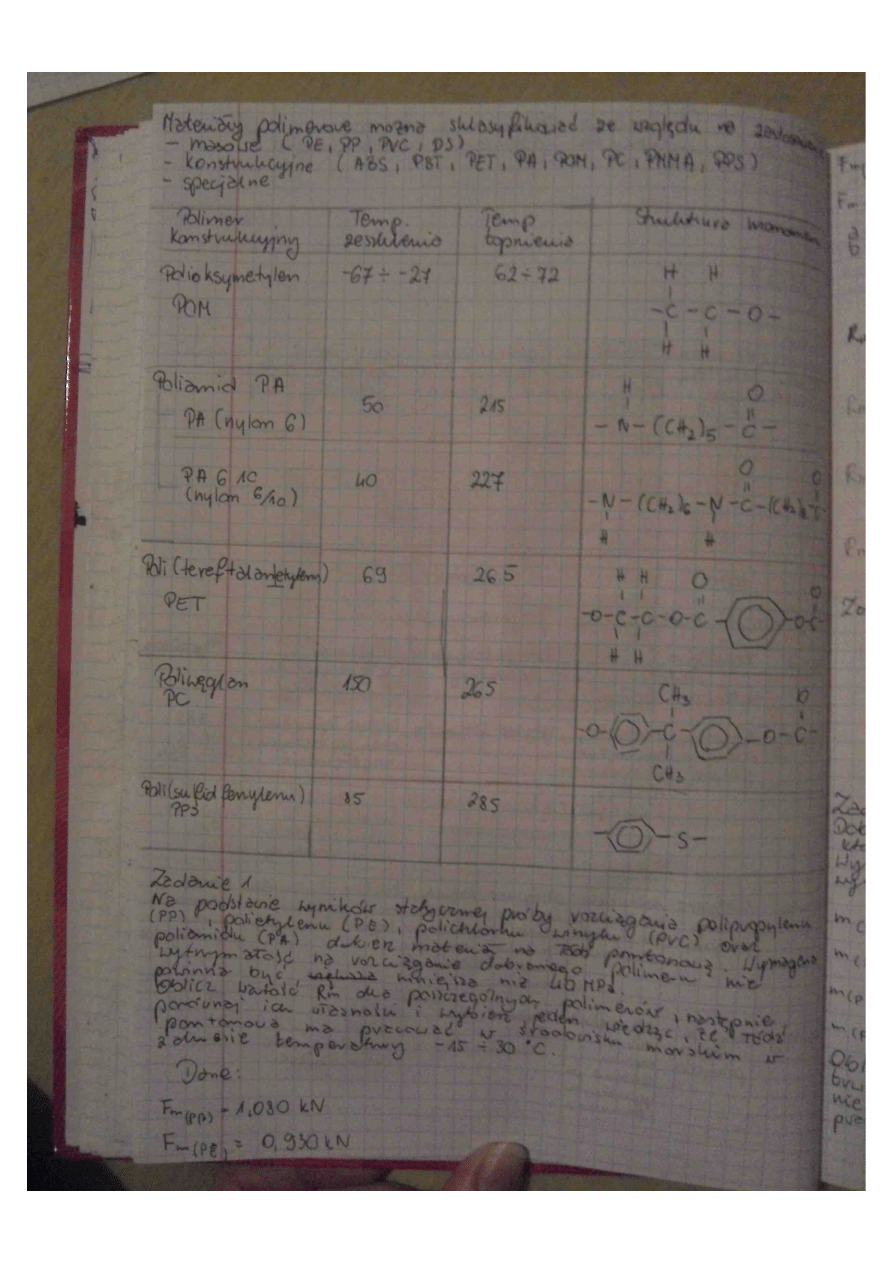 Materiały polimerowe można sklasyfikować ze względu na zastosowanie
- masowe ( PE, PP, PVC, PS)
- konstrukcyjne ( ABS, PBT, PET, PA, POM, PC, PMMA, PPS)
- specjalne
Polimer konstrukcyjny Temp. zeszklenia Temp topnienia Struktura
Polioksymetylen -67 ÷ -27 62 ÷ 72 H H
POM - C - C - O -
H H
Poliamid PA H O
PA (nylon 6) 50 215 - N - (CH2)5 - C -
PA 6 10 40 227 O O
(nylon 6/10) -N - (CH2)6 - N - C - (CH2)8 C
H H
Poli(tereftalanetylenu) 69 265 H H O O
PET -O-C-C-O-C- -O-C
H H
Poliwęglan 150 265 CH3 O
PC -O- -C- -O-C-
CH3
Poli(sulfid fenylenu) 85 285
PPS - S -
Zadanie 1
Na podstawie wyników statycznej próby rozciągania polipropylenu
(PP), polietylenu (PE), polichlorku winylu (PVC) oraz
poliamidu (PA) dobierz materiał na łódź pontonową. Wymagana
wytrzymałość na rozciąganie dobranego polimeru nie
powinna być mniejsza niż 40 MPa.
Oblicz wartość Rm dla poszczególnych polimerów, następnie
porównaj ich własności i wybierz jeden wiedząc, że łódź
pontonowa ma pracować w środowisku morskim w
zakresie temperatury -15 ÷ 30 °C.
Dane:
Fm(PP) = 1,080 kN
Fm(PE) = 0,930 kN
Fm
Fm
a
b
Za
Ob